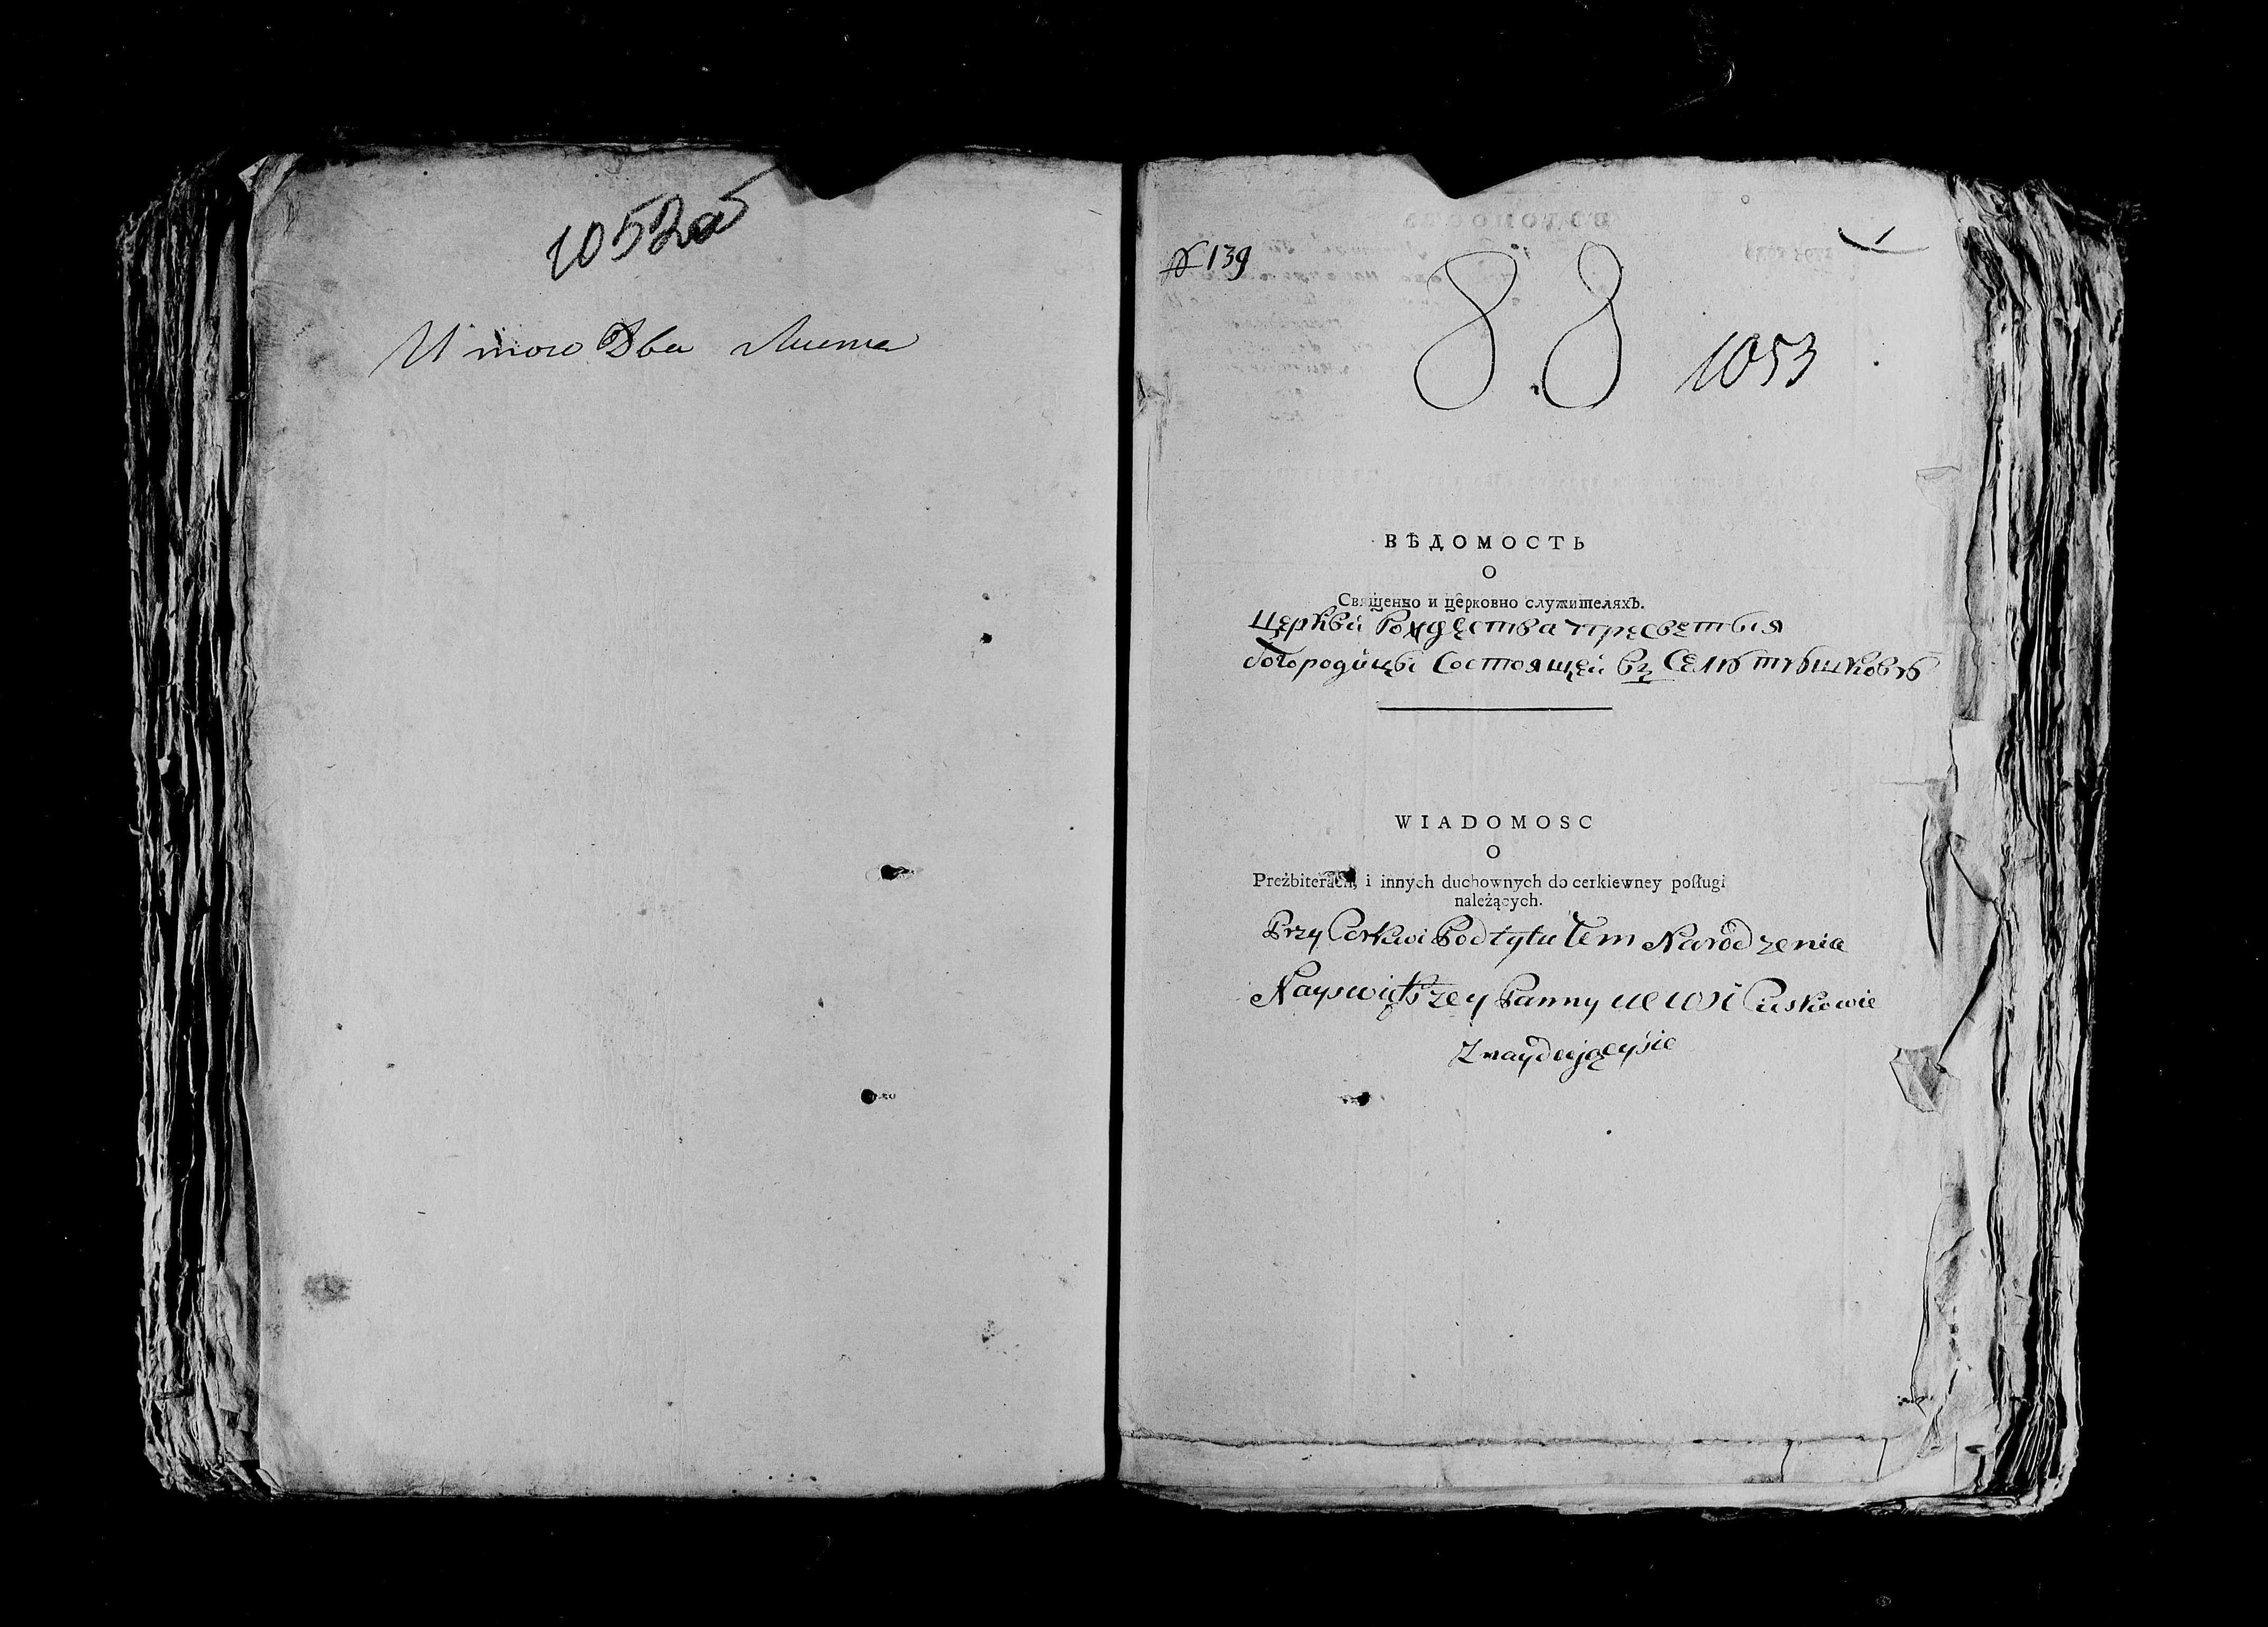 1052а
Итого Два листа
№ 139
88
1053
ВѢДОМОСТЬ
О
Священно и церковно служителяхЪ.
Церкви Рождества пресветыя
богородицы Состоящей въ Селѣ
WIADOMOSC
O
Preżbiterach, i innych duchownych do cerkiewney poſługi
należących.
Przy Cerkwi Pod tytułem Narodzenia
Nayswiętszey Panny we wsi
Znayduiącysie